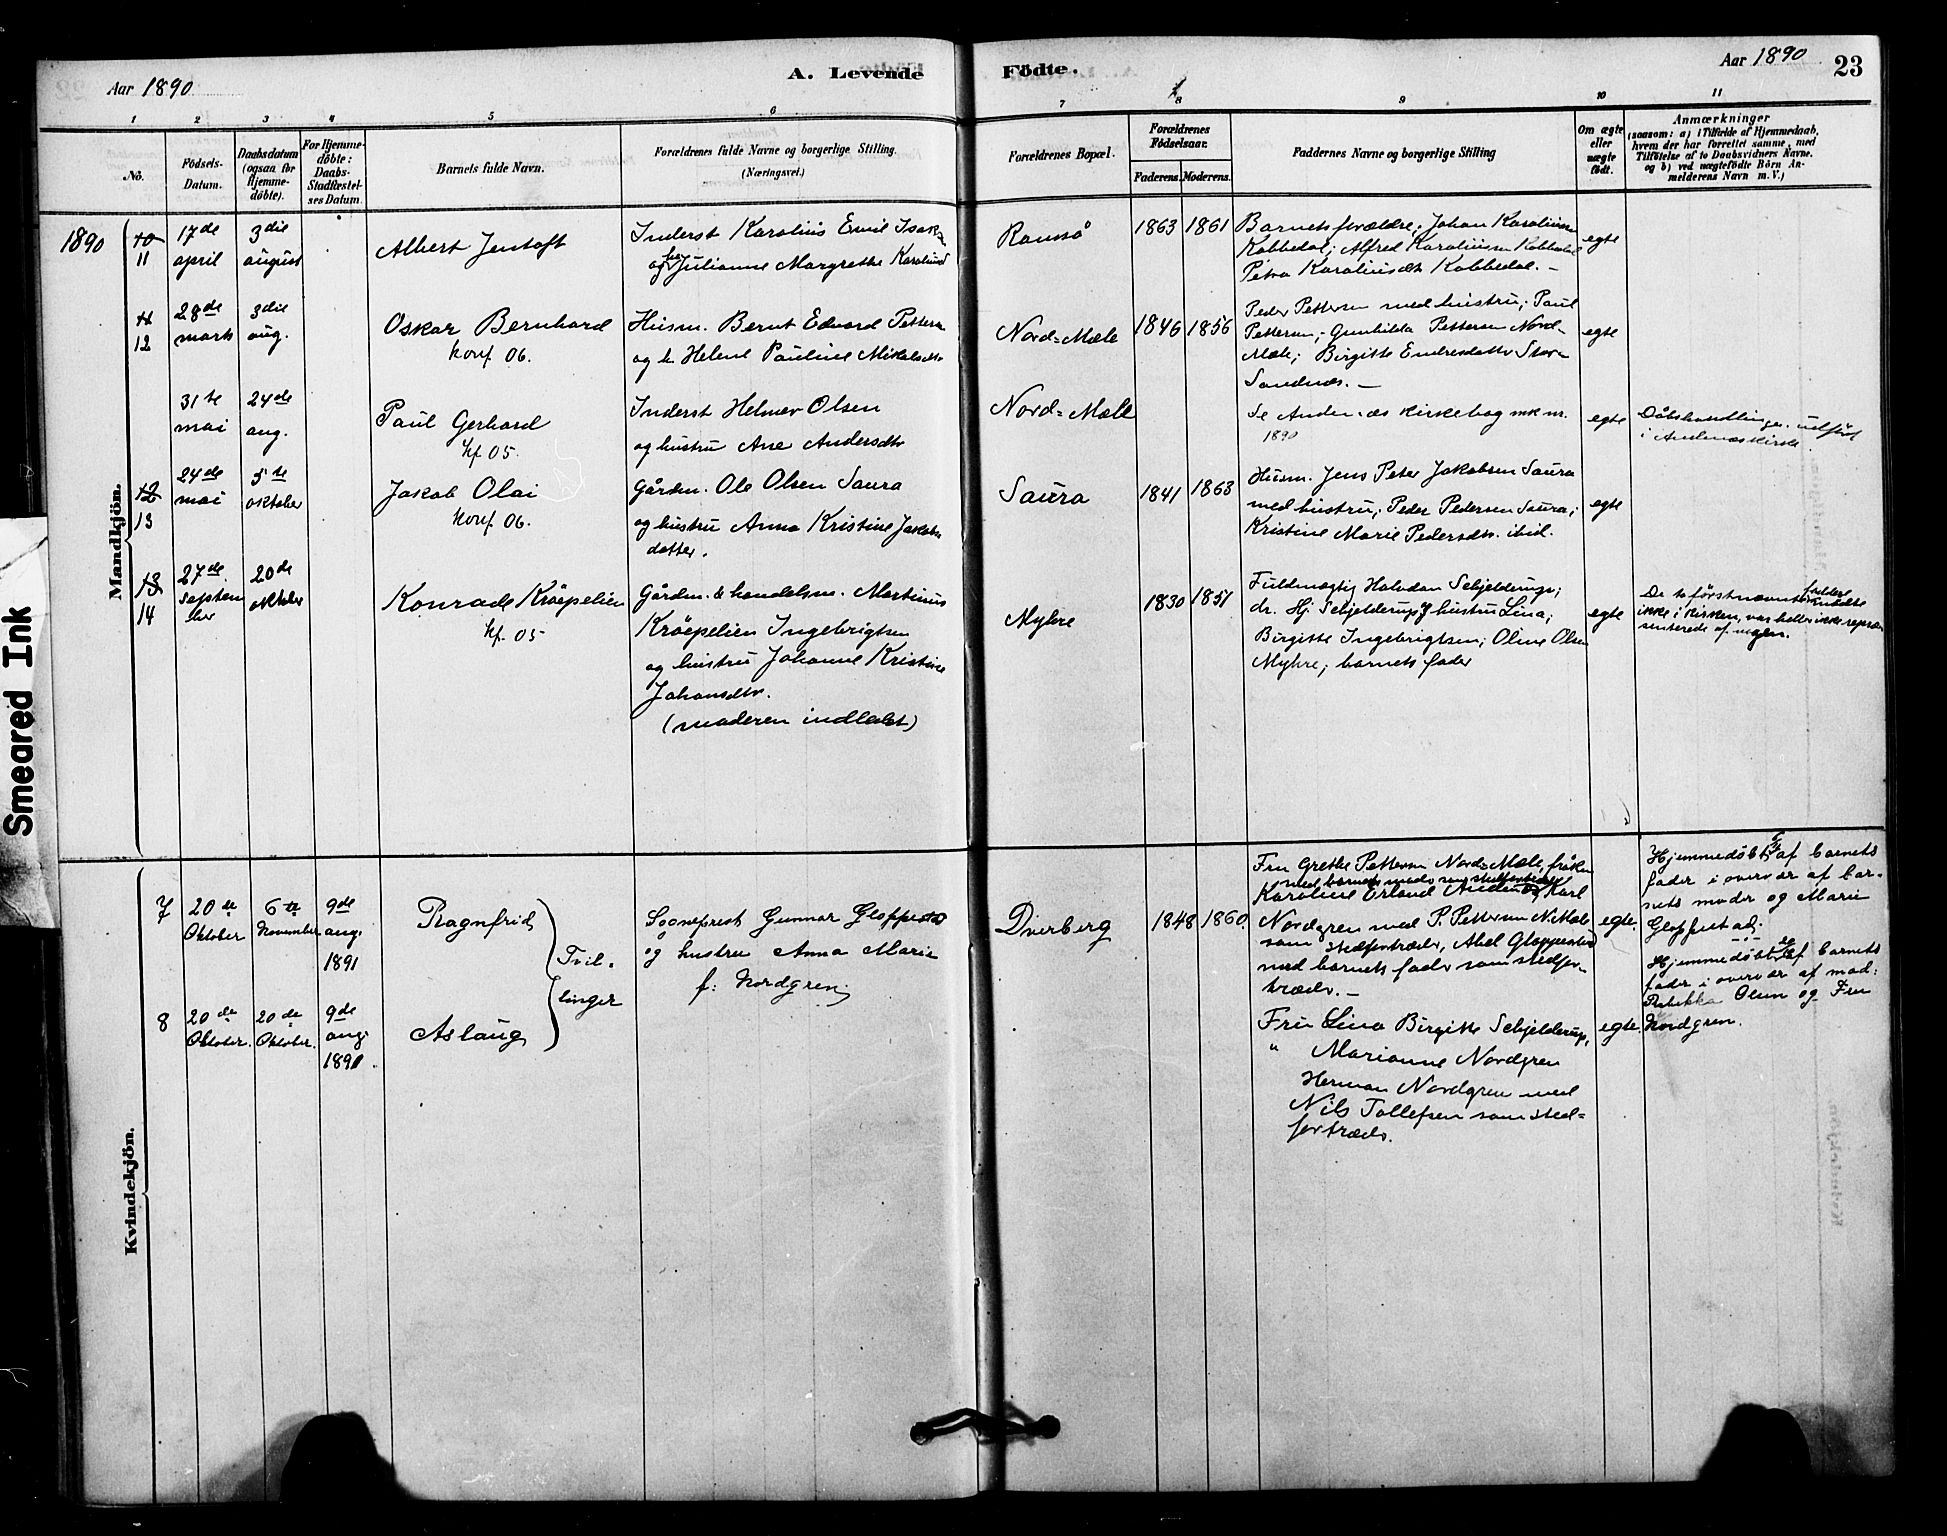 Aar 1890
A. Levende
Födte.
Aar 1890
23
1 2 3 4 5 6 7 8 9 10 11
No.
Födsels-
Datum.
Daabsdatum
(ogsaa for
Hjemme-
döbte).
For Hjemme-
döbte:
Daabs-
Stadfæstel-
ses Datum.
Barnets fulde Navn.
Forældrenes fulde Navne og borgerlige Stilling.
(Næringsvei.)
Forældrenes Bopæl.
Forældrenes
Födselsaar.
Faderens. Moderens.
Faddernes Navne og borgerlige Stilling
Om ægte
eller
uægte
födt.
Anmærkninger
(saasom: a) i Tilfælde af Hjemmedaab,
hvem der har forrettet samme, med
Tilföielse af to Daabsvidners Navne.
og b) ved uægtefödte Börn An-
melderens Navn m. V.)
Mandkjön.
1890
10
11
17de
april
3die
august
Albert Jentoft
Inderst Karolius Emil Isaks
og hu Julianne Margrethe Karoliusd
Ramså
1863 1861
Barnets forældre; Johan Karoliussen
Kobbedal; Alfred Karoliussen Kobbedal
Petra Karoliusdtr Kobbedal. –
egte
11
12
28de
marts
3die
aug.
Oskar Bernhard
konf 06.
Husm. Bernt Edvard Petters
og h Helene Pauline Mikalsdtr
Nord=Mæle
1846 1856
Peder Pettersen med hustru; Paul
Pettersen; Gunhilda Pettersen Nord-
Mæle; Birgitte Endresdattr Store
Sandnæs. –
egte
31te
mai
24de
aug.
Paul Gerhard
Kf. 05.
Inderst Helmer Olsen
og hustru Ane Andersdtr
Nord=Mæle
Se Andenæs kirkebog
1890
egte
Dåbshandlingen udført
i Andenæs kirke
12
13
24de
mai
5te
oktober
Jakob Olai
konf 06.
Gårdm. Ole Olsen Saura
og hustru Anna Kristine Jakobs
datter.
Saura
1841 1863
Husm. Jens Peter Jakobsen Saura
med hustru; Peder Pedersen Saura;
Kristine Marie Pedersdtr. ibid.
egte
13
14
27de
septem
ber
20de
oktober
Konrade Kröepelien
kf. 05
Gårdm. & handelsm. Martinus
Kröepelien Ingebrigtsen
og hustru Johanne Kristine
Johansdtr.
(moderen indledet)
Myhre
1830 1851
Fuldmægtig Halvdan Schjelderup;
dr. Hj. Schjelderups hustru Lina;
Birgitte Ingebrigtsen; Oline Olsen
Myhre; barnets fader
egte
De to förstnævnte faddere mödte
ikke i kirken, var heller ikke repræ-
senterede af nogen.
Kvindekjön.
7
20de
Oktober
6te
November
9de
aug.
1891
Ragnfrid
Tvil-
linger
Sogneprest Gunnar Gloppestad
og hustru Anna Marie
f: Nordgren.
Dverberg
1848 1860.
Fru Grethe Pettersen Nord-Mæle, fröken
med barnets moder som stedfortræder
Karoline Erland Andenæs, Karl
Nordgren med P. Pettersen N.Mæle
som stedfortræder, Abel Gloppestad
med barnets fader som stedfor-
træder. –
egte.
Hjemmedøbt af barnets
fader i overvær af bar-
nets moder og Marie
Gloppestad.
8
20de
Oktober.
20de
Oktober.
9de
aug.
1890.
Aslaug
Fru Lina Birgitte Schjelderup,
" Marianne Nordgren
Herman Nordgren med
Nils Tollefsen som sted=
fortræder.
egte.
Hjemmedøbt af barnets
fader i overvær af mad:
Rebekka Olsen og Fru
Nordgren.
Smeared Ink